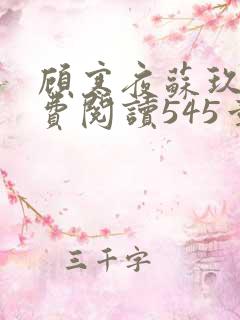 顾寒夜蘇玖
費閱讀545
三千字